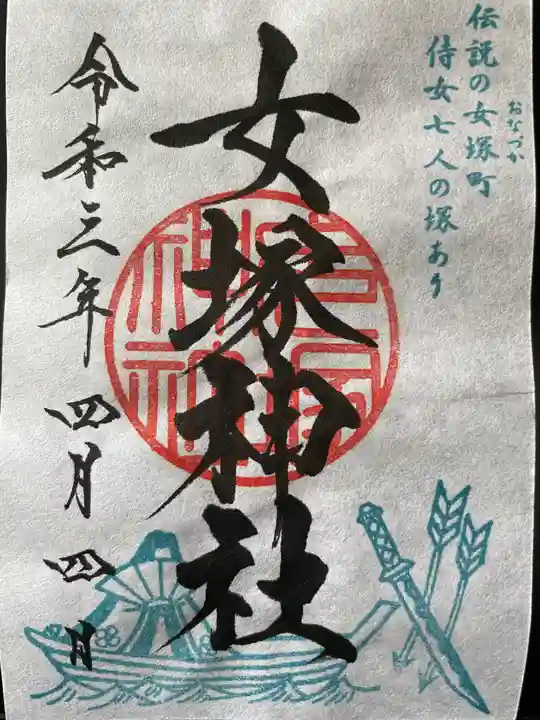 伝説の女塚町
おなづか
侍女七人の塚あり
女塚神社
令和三年 四月 四月